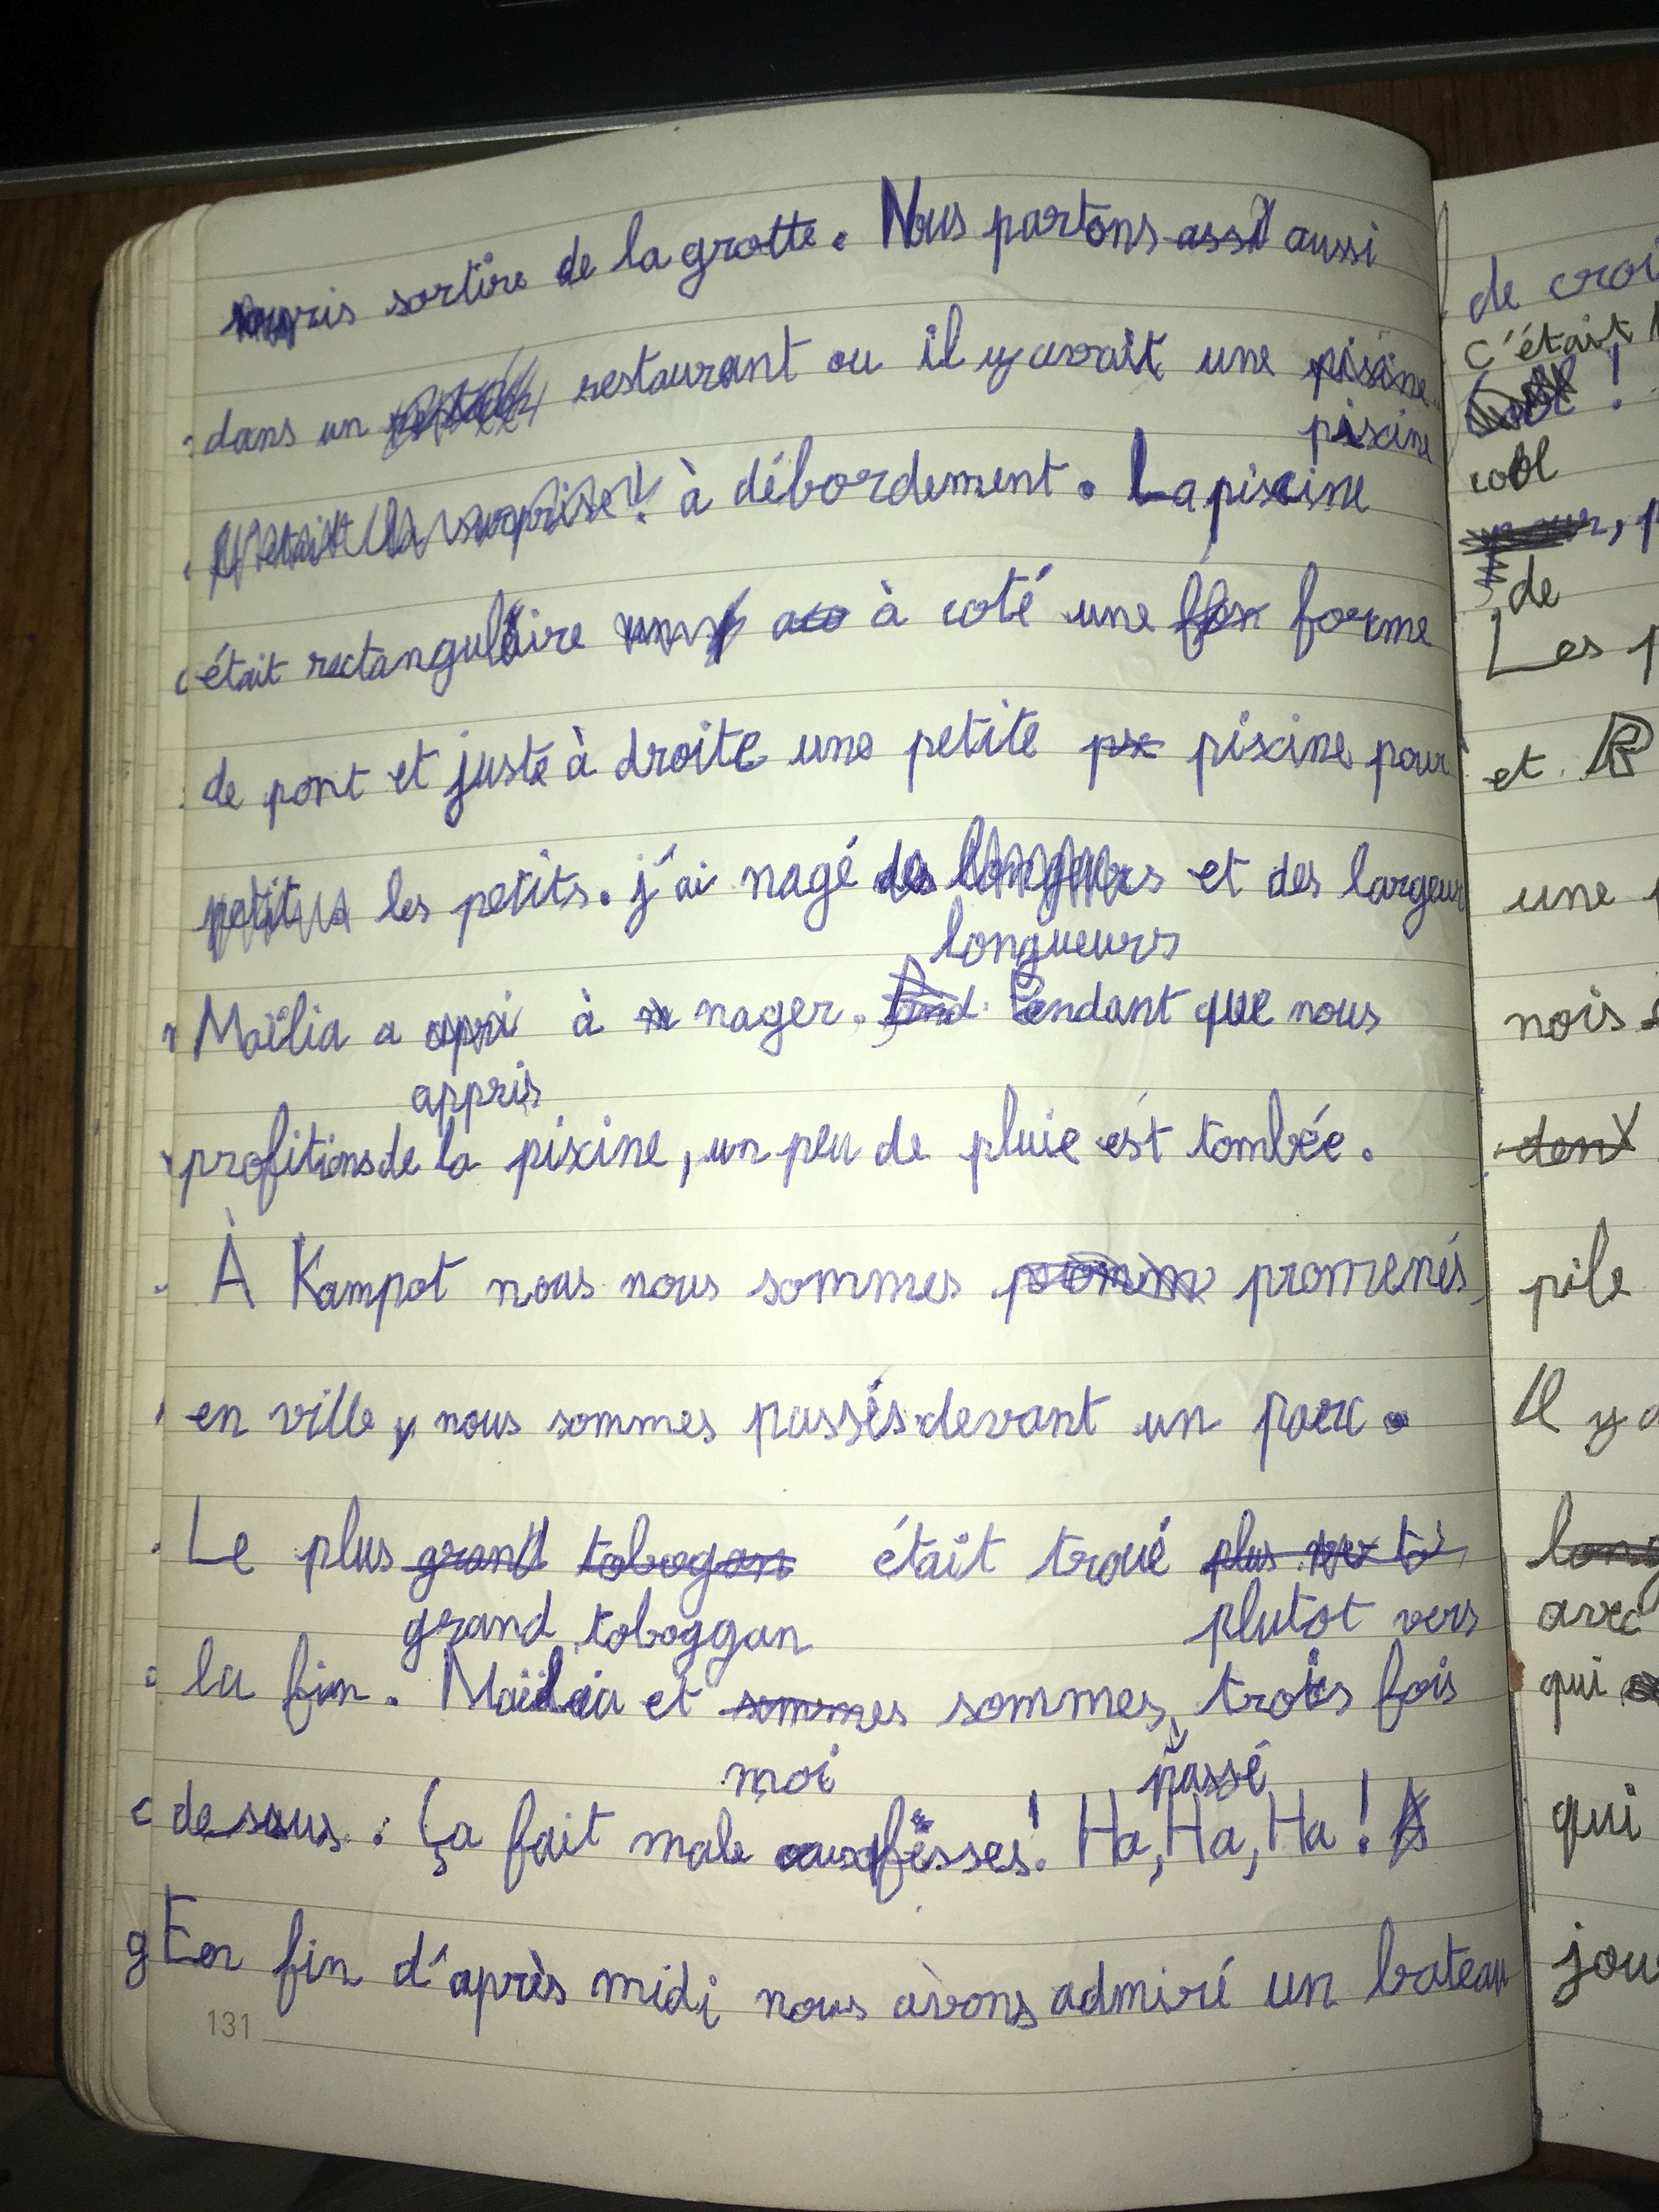 souris sortire de la grotte. Nous partons assi aussi
dans un restaurant ou il y avait une pisine
piscine
C'était la surprise ! à débordement. La piscine
était rectangulaire à coté une forme
de pont et juste à droite une petite pix piscine pour
les petits. j'ai nagé des et des largeur
longueurs
Maëlia a apri à n nager. Pendant que nous
appris
profitions de la piscine, un peu de pluie est tombée.
À Kampot nous nous sommes promenés,
en ville, nous sommes passés devant un parc.
Le plus grand tobogan était troué plus ver
grand toboggan plutot vers
la fin. Maëlia et sommes sommes trois fois
moi passé
desous : Ça fait male aux fesses ! Ha, Ha, Ha !
En fin d'après midi nous avons admiré un bateau
131
de croi
c'était
!
cool
de
Les p
et R
une
nois
dent
pile
Il y a
long
avec
qui
qui
jou